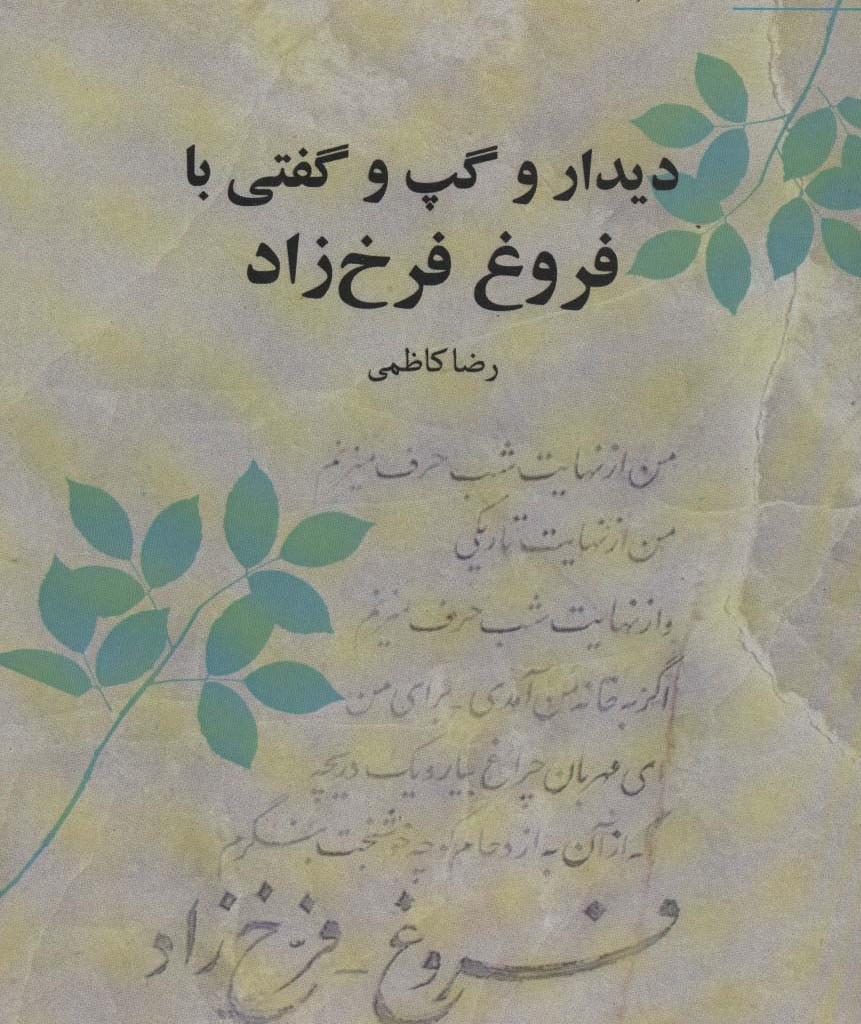 دیدار و گپ و گفتی با
فروغ فرخ‌زاد
رضا کاظمی
من از نهایت شب حرف میزنم
من از نهایت تاریکی
و از نهایت شب حرف میزنم
اگر به خانه من آمدی - برای من
ای مهربان چراغ بیار و یک دریچه
که از آن به ازدحام کوچه خوشبخت بنگرم
فروغ - فرّخ زاد